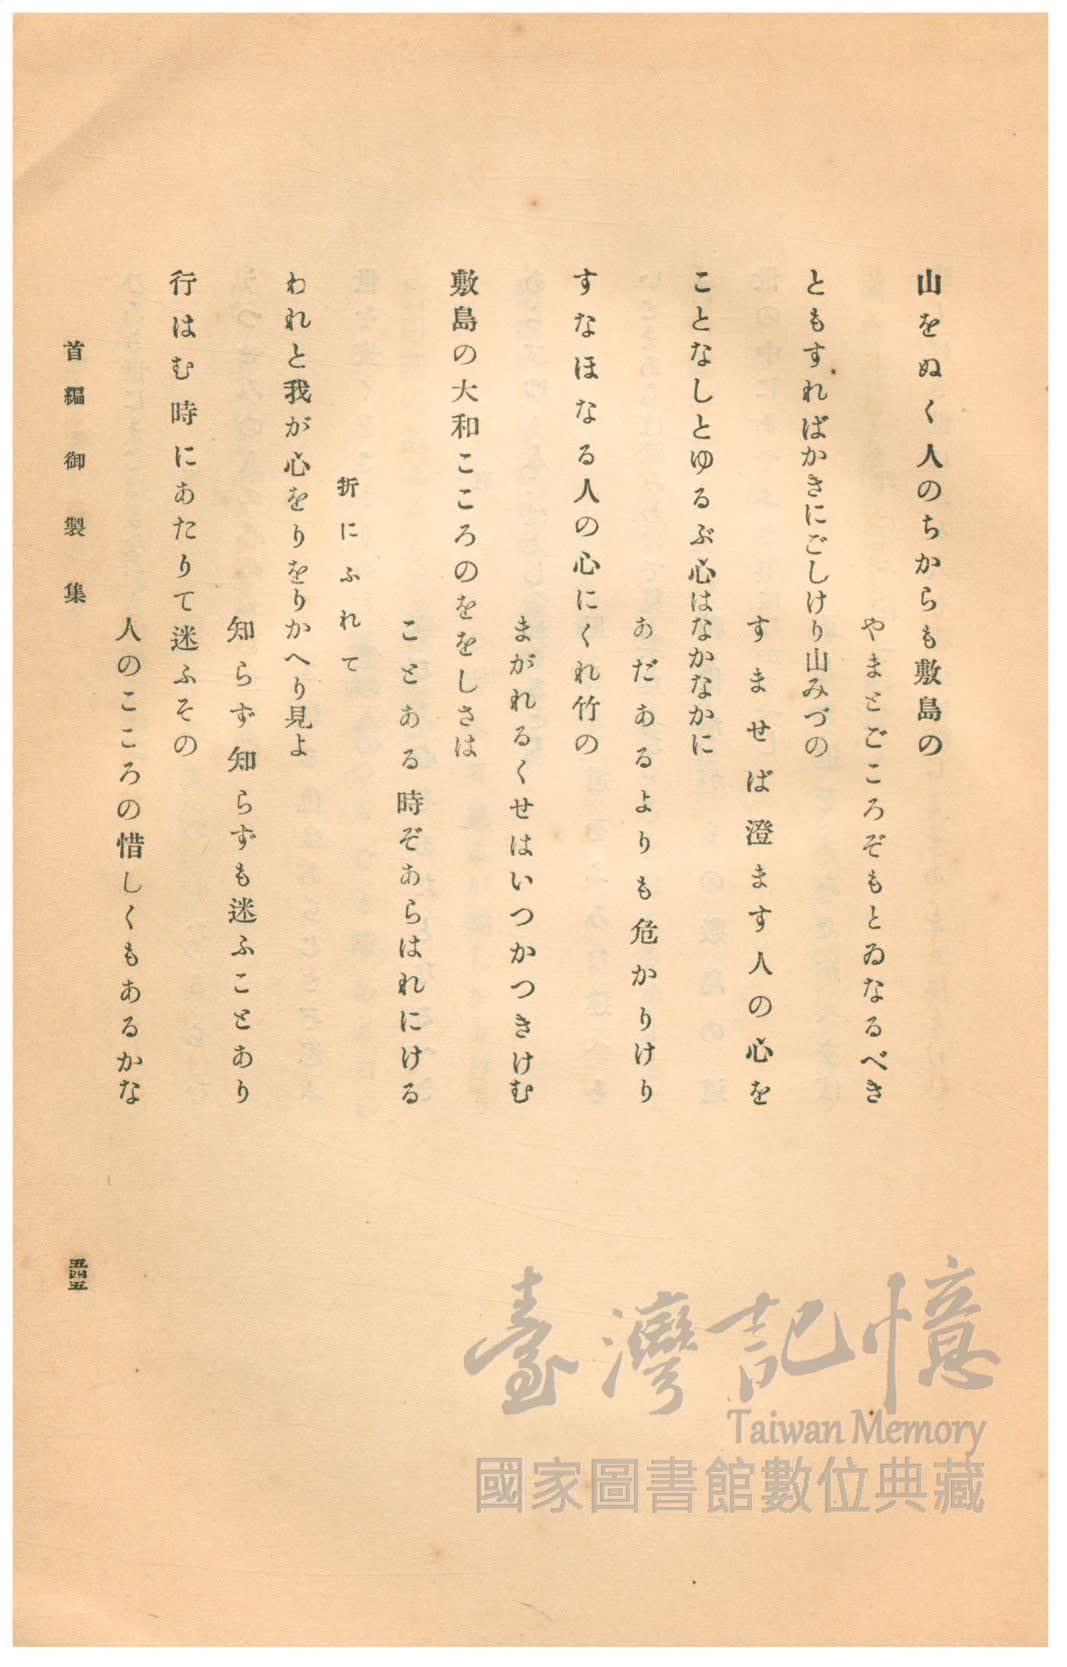 山をぬく人のちからも敷島の
やまとごころぞもとゐなるべき
ともすればかきにごしけり山みづの
すませば澄ます人の心を
ことなしとゆるぶ心はなかなかに
あだあるよりも危かりけり
すなほなる人の心にくれ竹の
まがれるくせはいつかつきけむ
敷島の大和こころのををしさは
ことある時ぞあらはれにける
折にふれて
われと我が心をりをりかへり見よ
知らず知らずも迷ふことあり
行はむ時にあたりて迷ふその
人のこころの惜しくもあるかな
首編御製集
五四五
臺灣記憶
Taiwan Memory
國家圖書館數位典藏